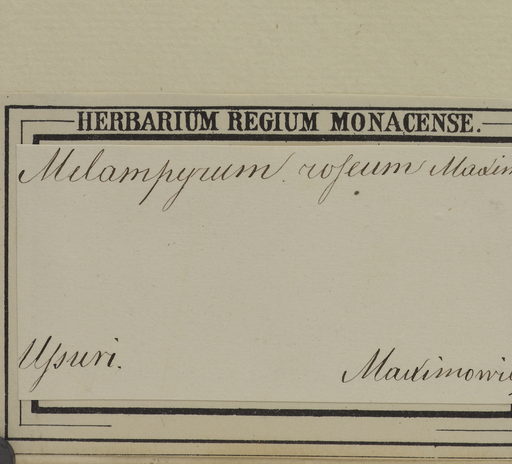 HERBARIUM REGIUM MONACENSE.
Melampyrum roseum Maxim
Ussuri.
Maximowi